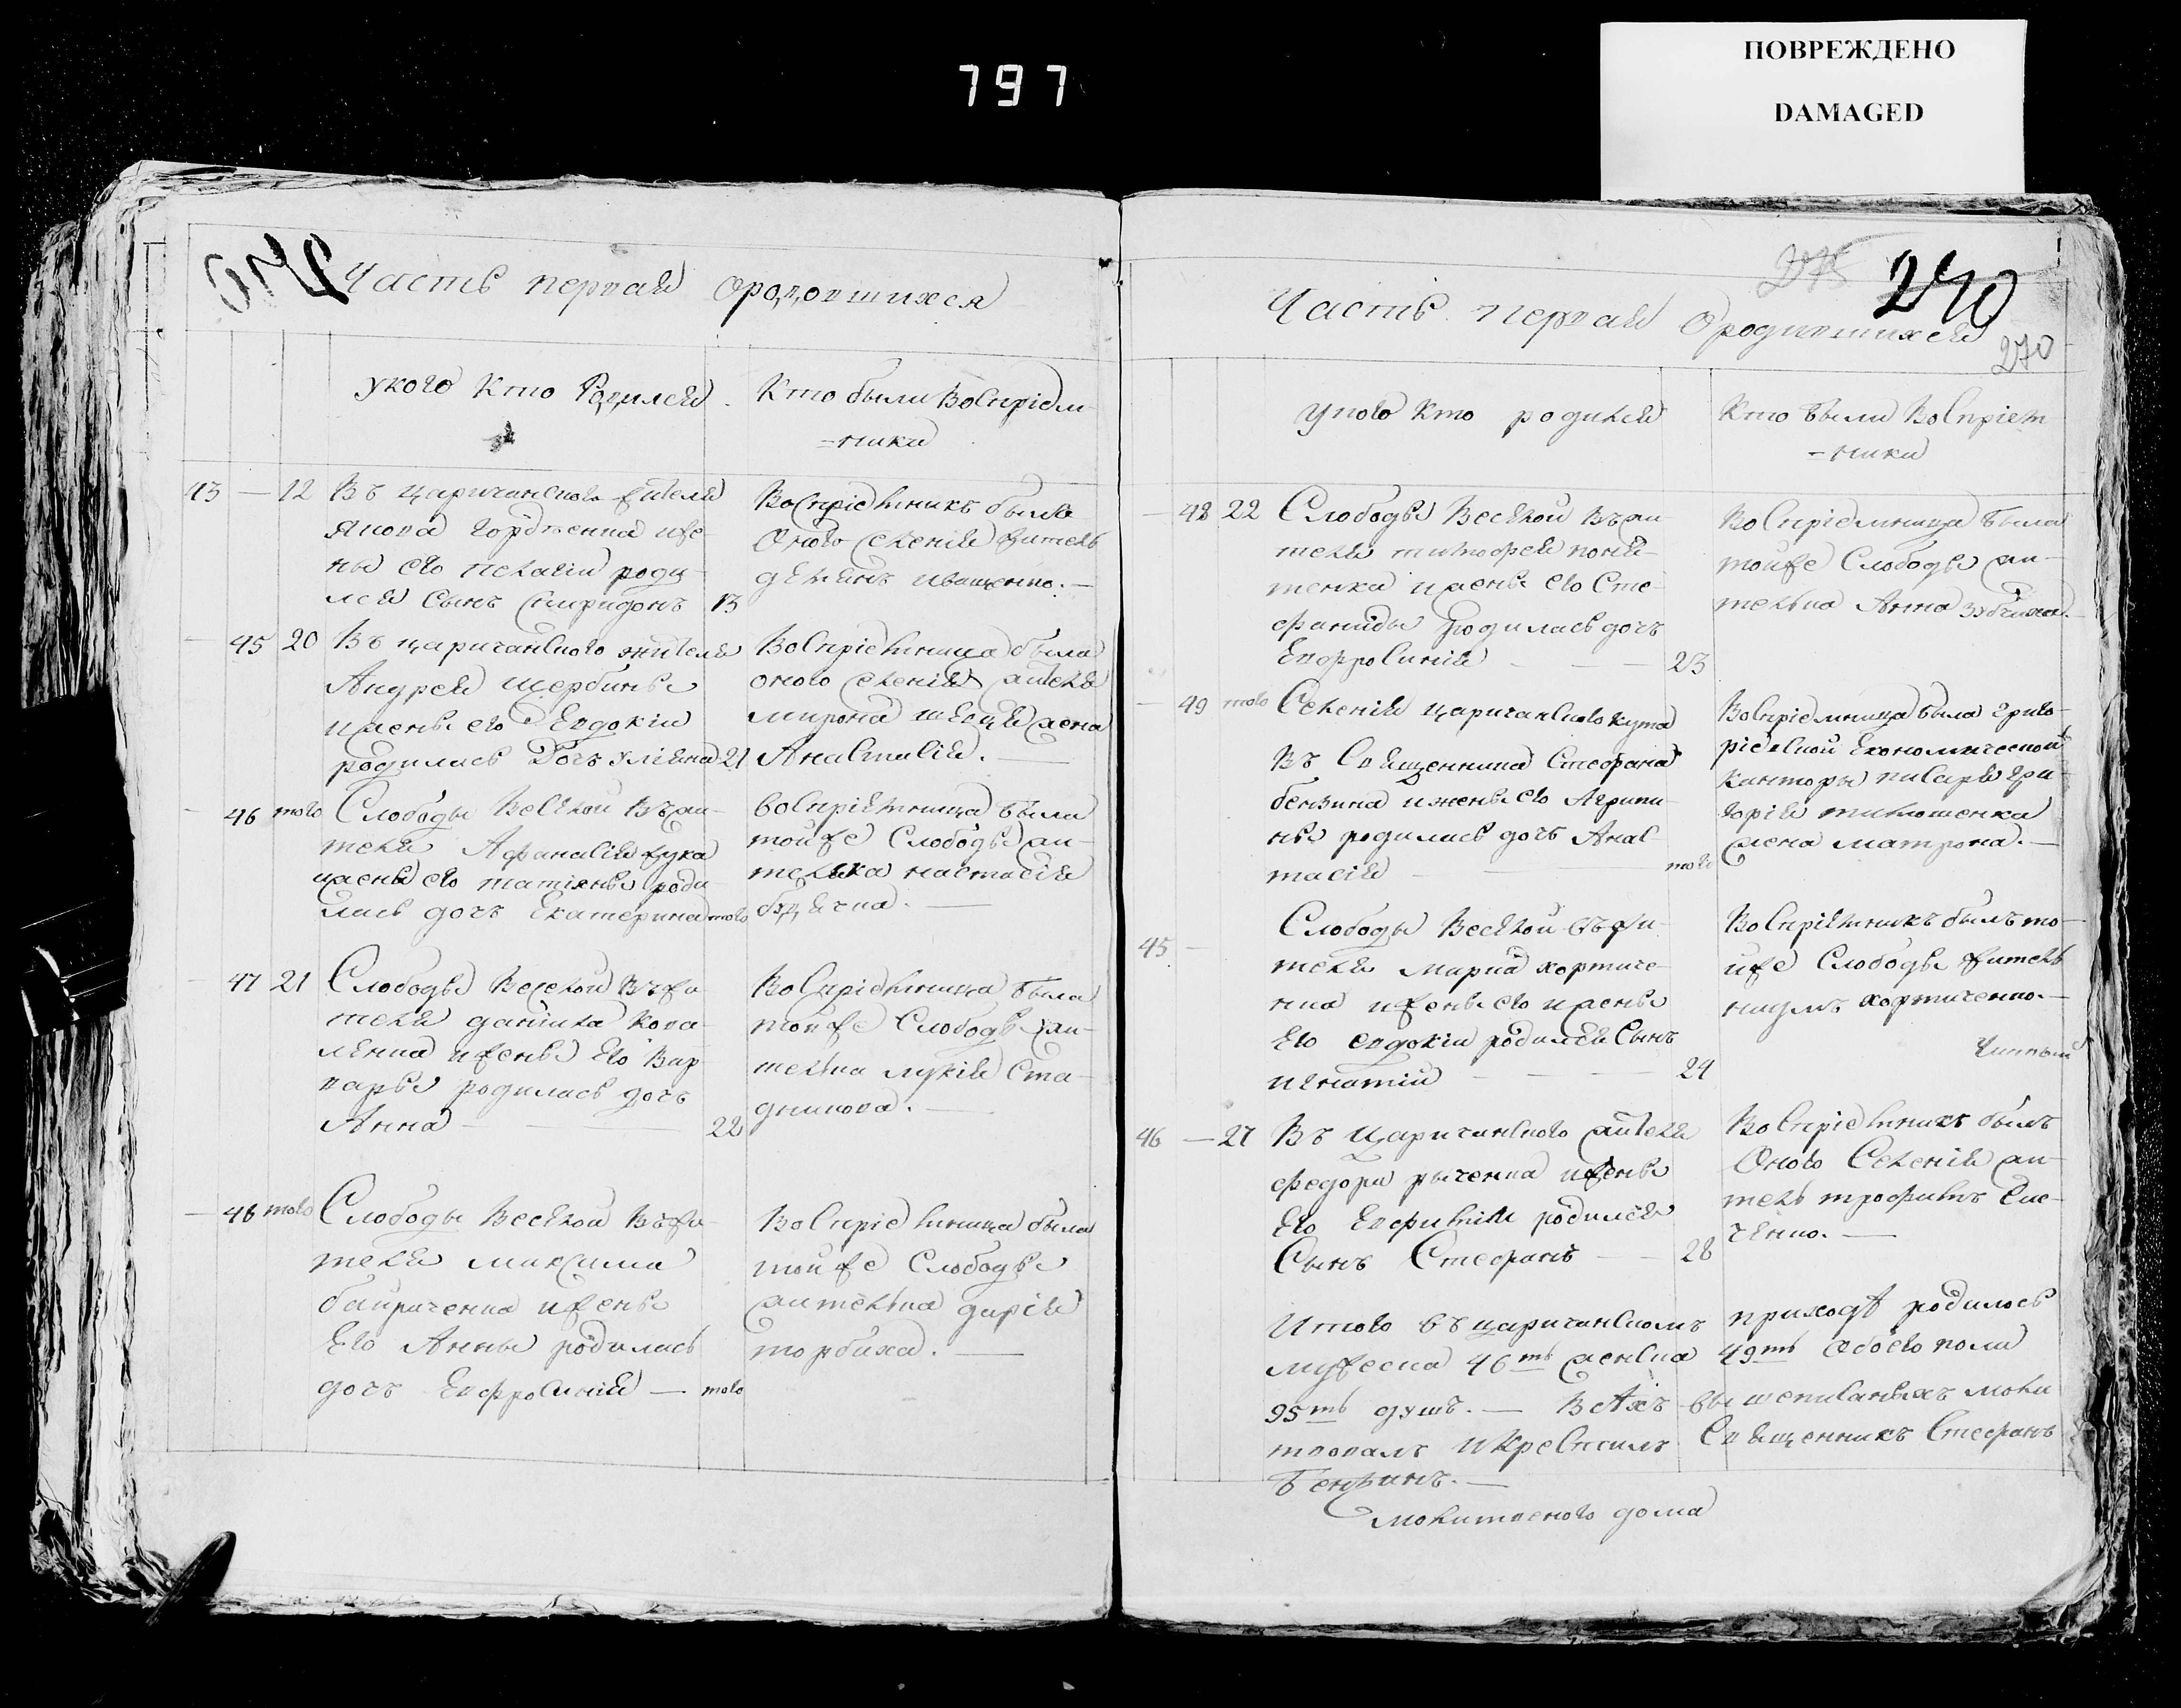 797
ПОВРЕЖДЕНО
DAMAGED
Часть первая ородовшихся
укого Кто Родился
Кто были Воспріем-
-ники
43 — 12 Въ царичанского жителя
Якова Гордѣенка иже-
ны его пелагіи роди-
лся Сынъ Спиридонъ 13
Воспріемникъ былъ
Оного селенія житель
Иващенко. —
— 45 20 Въ царичанского жителя
Андрея щербины
ижены его Евдокіи
родилась Дочъ Уліяна 21
Воспріемница была
оного селенія жителя
мирона жена
Анастасія. —
— 46 того Слободы Веселой Въжи-
теля Афанасія жука
ижены его татіяны роди-
лась дочъ Екатерина того
воспріемница была
тойже Слободы жи-
телка настасія
— 47 21 Слободы Веселой Въжи-
теля данила Кова-
ленка ижены Его Вар-
вары родилась дочъ
Анна — 22
Воспріемница была
тойже Слободы жи-
телка лукія Ста-
дникова. —
— 48 того Слободы Веселой Въжи-
теля максима
ижены
Его Анны родилась
дочъ Евфросинія — того
Воспріемница была
тойже Слободы
жителка дарія
торбиха. —
275 270
270
Часть первая Ородившихся
укого Кто родился
Кто были Воспріем-
-ники
— 48 22 Слободы Веселой Въжи-
теля тимофея
ижены его Сте-
фаниды родилась дочъ
Евфросинія — 23
Воспріемница была
тойже Слободы жи-
телка Анна
— 49 того Селенія царичанского кута
Въ Священника Стефана
бензина ижены его Агрипи-
ны родилась дочъ Анас-
тасія — того
Воспріемница была
Економической
Канторы писаря гри-
горія тимошенка
жена матрона. —
45 — Слободы Веселой въжи-
теля марка хортиче-
нка ижены его ижены
Его евдокіи родился Сынъ
игнатій — 24
Воспріемникъ былъ то-
йже Слободы житель
наумъ хортиченко. —
46 — 27 Въ Царичанского жителя
федора ижены
Его Евфиміи родился
Сынъ Стефанъ — 28
Воспріемникъ былъ
Оного Селенія жи-
тель трофимъ
Итого въ царичанскомъ приходѣ родилось
мужеска 46ть женска 49ть Обоего пола
95ть душъ. — Всѣхъ вышеписаныхъ моли
твовалъ Икрестилъ Священникъ Стефанъ
Бензинъ. —
молитвеного дома